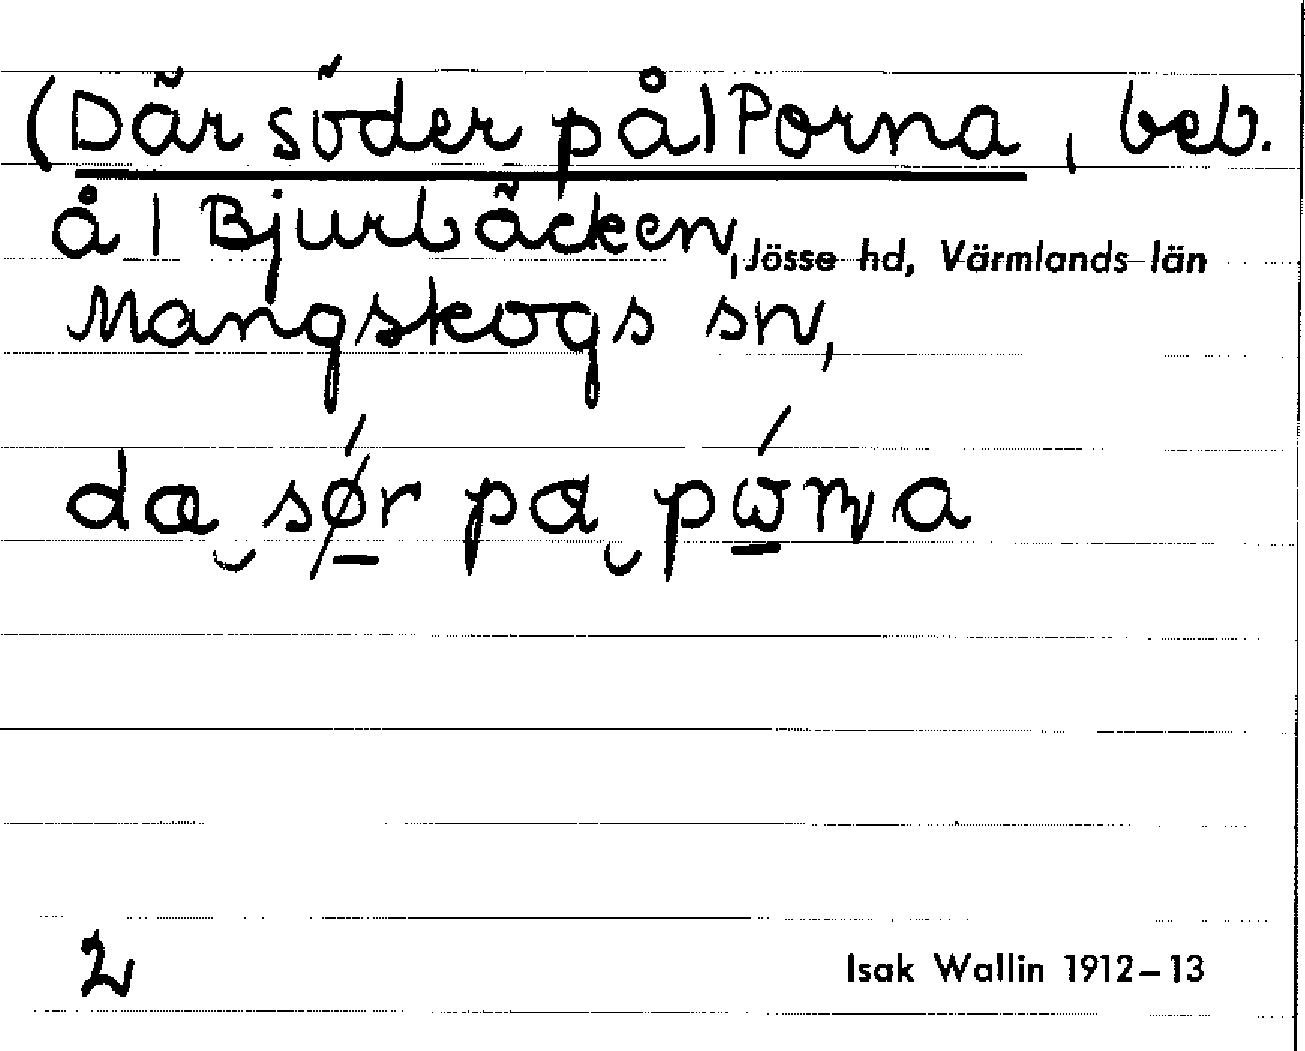 (Där söder på| Porna, beb.
å | Bjurbäcken, Jösse hd, Värmlands län
Mangskogs sn,
2
Isak Wallin 1912–13